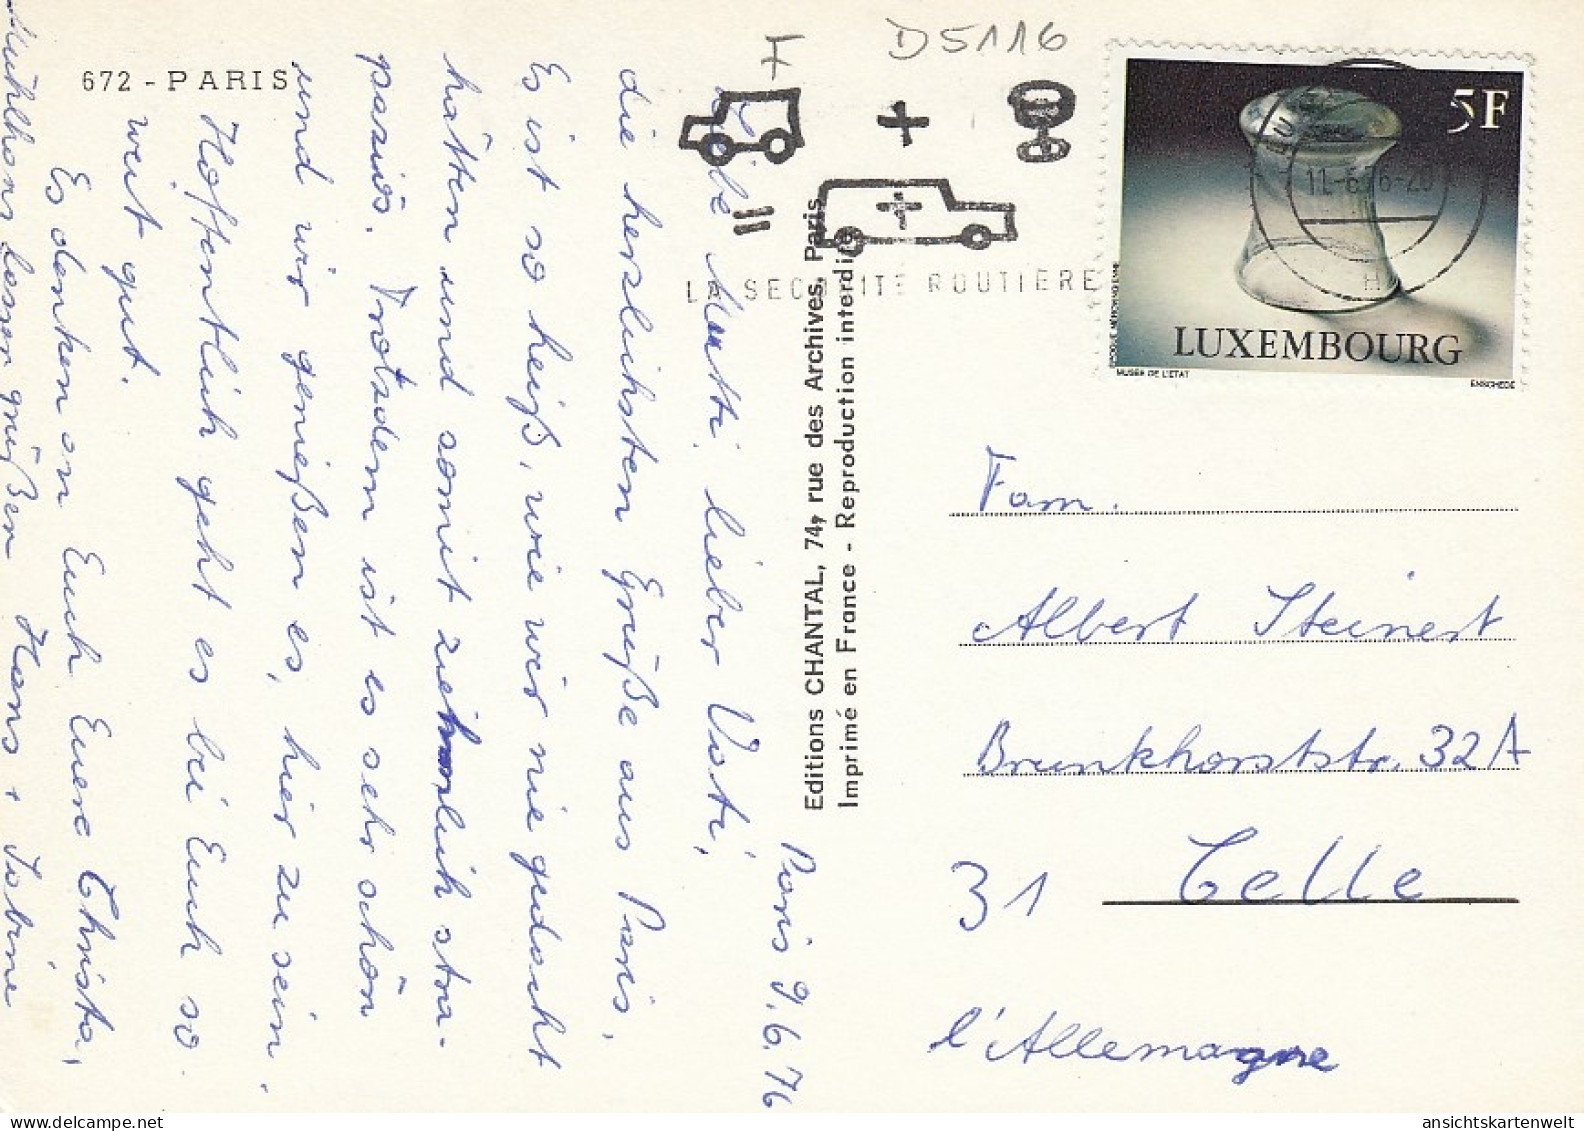 672 - PARIS
Paris 9.6.76
Liebe Mutti, lieber Vati,
die herzlichsten Grüße aus Paris.
Es ist so heiß, wie wir nie gedacht
hätten und somit ziemlich stra-
paziös. Trotzdem ist es sehr schön
und wir genießen es, hier zu sein.
Hoffentlich geht es bei Euch so
weit gut.
Es denken an Euch Euere Christa,
lassen grüßen Hans + Sabine
Editions CHANTAL, 74, rue des Archives, Paris
Imprimé en France - Reproduction interdite
F
D5116
LA SECURITE ROUTIERE
11-6-76-20
H
5F
LUXEMBOURG
MUSÉE DE L'ETAT
ENSCHEDE
Fam.
Albert Steinert
Brunkhorststr. 32A
31 Celle
l'Allemagne
ansichtskartenwelt